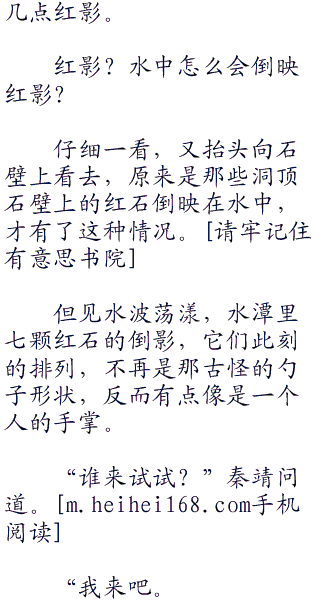 几点红影。
红影？水中怎么会倒映
红影？
仔细一看，又抬头向石
壁上看去，原来是那些洞顶
石壁上的红石倒映在水中，
才有了这种情况。[请牢记住
有意思书院]
但见水波荡漾，水潭里
七颗红石的倒影，它们此刻
的排列，不再是那古怪的勺
子形状，反而有点像是一个
人的手掌。
“谁来试试？”秦靖问
道。[m.heihei168.com手机
阅读]
“我来吧。